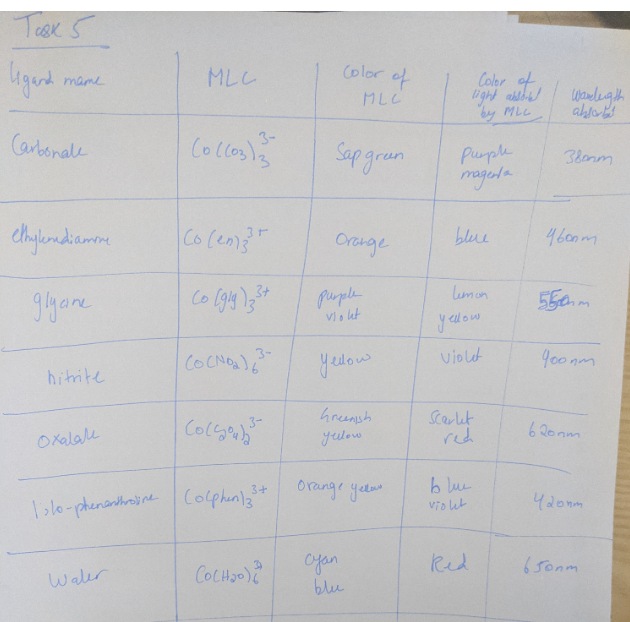 Task 5
Ligand name MLC Color of MLC Color of light absorbed by MLC Wavelength absorbed
Carbonate Co(CO3)3 3- Sap green purple magenta 380nm
ethylenediamine Co(en)3 3+ Orange blue 460nm
glycine Co(gly)3 3+ purple violet lemon yellow 550nm
nitrite Co(NO2)6 3- yellow violet 400nm
Oxalate Co(C2O4)2 3- Greenish yellow Scarlet red 620nm
1,10-phenanthroline Co(phen)3 3+ Orange yellow blue violet 420nm
Water Co(H2O)6 cyan blue Red 650nm